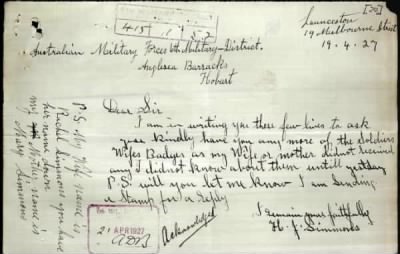 [20]
Launceston
19 Melbourne Street
19.4.27
415 1 52
Australian Military Forces 6th Military District.
Anglesea Barracks
Hobart
Dear Sir
I am in writing you these few lines to ask
you kindly have you any more of the Soldiers
Wifes Badges as my Wife or mother did not received
any I did not know about them until
P.S. will you let me know I am Sending
a Stamp for a reply
I remain yours faithfully
H. J. Simmons
Acknowledged
21 APR 1927
P.S. My Wife name is
Simmons you have
her name down
my Mother name is
Mary Simmons